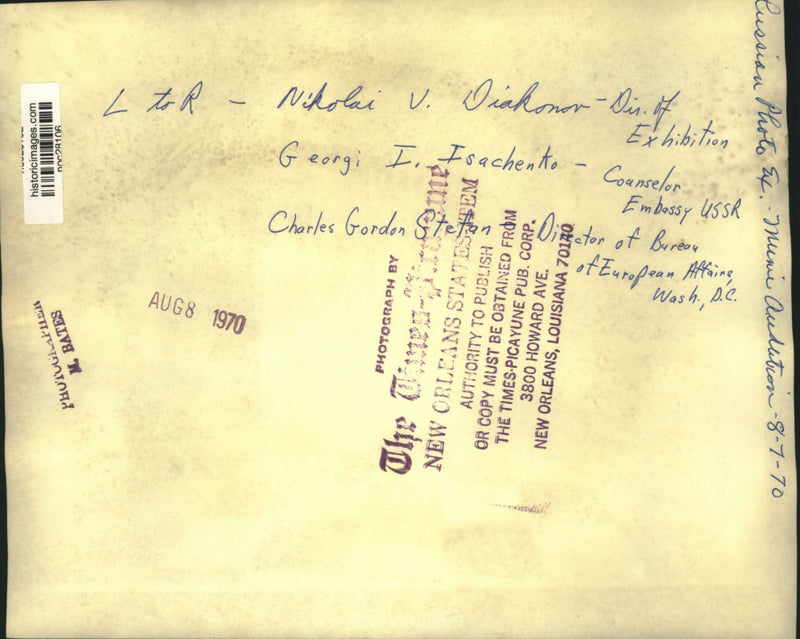 L to R - Nikolai V. Diakonov - Dir. of
Exhibition
Georgi I. Isachenko - Counselor
Embassy USSR
Charles Gordon Stefan - Director of Bureau
of European Affairs,
Wash., D.C.
Russian Photo Ex. - Mumi Audution - 8-7-70
historicimages.com
AUG 8 1970
PHOTOGRAPHER
M. BATES
PHOTOGRAPH BY
The Times-Picayune
NEW ORLEANS STATES-ITEM
AUTHORITY TO PUBLISH
OR COPY MUST BE OBTAINED FROM
THE TIMES-PICAYUNE PUB. CORP.
3800 HOWARD AVE.
NEW ORLEANS, LOUISIANA 70140